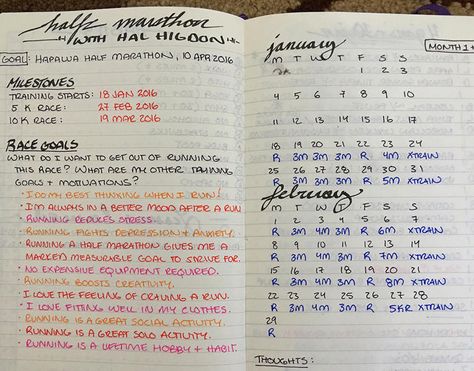 half marathon
WITH HAL HIGDON
GOAL: HAPALUA HALF MARATHON, 10 APR 2016
MILESTONES
TRAINING STARTS: 18 JAN 2016
5 K RACE: 27 FEB 2016
10 K RACE: 19 MAR 2016
RACE GOALS
WHAT DO I WANT TO GET OUT OF RUNNING
THIS RACE? WHAT ARE MY OTHER TRAINING
GOALS + MOTIVATIONS?
• I DO MY BEST THINKING WHEN I RUN!
• I'M ALWAYS IN A BETTER MOOD AFTER A RUN
• RUNNING REDUCES STRESS.
• RUNNING FIGHTS DEPRESSION + ANXIETY.
• RUNNING A HALF MARATHON GIVES ME A
MARKED MEASURABLE GOAL TO STRIVE FOR.
• NO EXPENSIVE EQUIPMENT REQUIRED.
• RUNNING BOOSTS CREATIVITY.
• I LOVE THE FEELING OF CRAVING A RUN.
• I LOVE FITTING WELL IN MY CLOTHES.
• RUNNING IS A GREAT SOCIAL ACTIVITY.
• RUNNING IS A GREAT SOLO ACTIVITY.
• RUNNING IS A LIFETIME HOBBY + HABIT.
january
MONTH 1
M T W T F S S
1 2 3
4 5 6 7 8 9 10
11 12 13 14 15 16 17
18 19 20 21 22 23 24
R 3M 3M 3M R 4M XTRAIN
25 26 27 28 29 30 31
R 3M 3M 3M R 5M XTRAIN
february
M T W T F S S
1 2 3 4 5 6 7
R 3M 4M 3M R 6M XTRAIN
8 9 10 11 12 13 14
R 3M 4M 3M R 7M XTRAIN
15 16 17 18 19 20 21
R 3M 4M 3M R 8M XTRAIN
22 23 24 25 26 27 28
R 3M 4M 3M R 5KR XTRAIN
29
R
THOUGHTS: